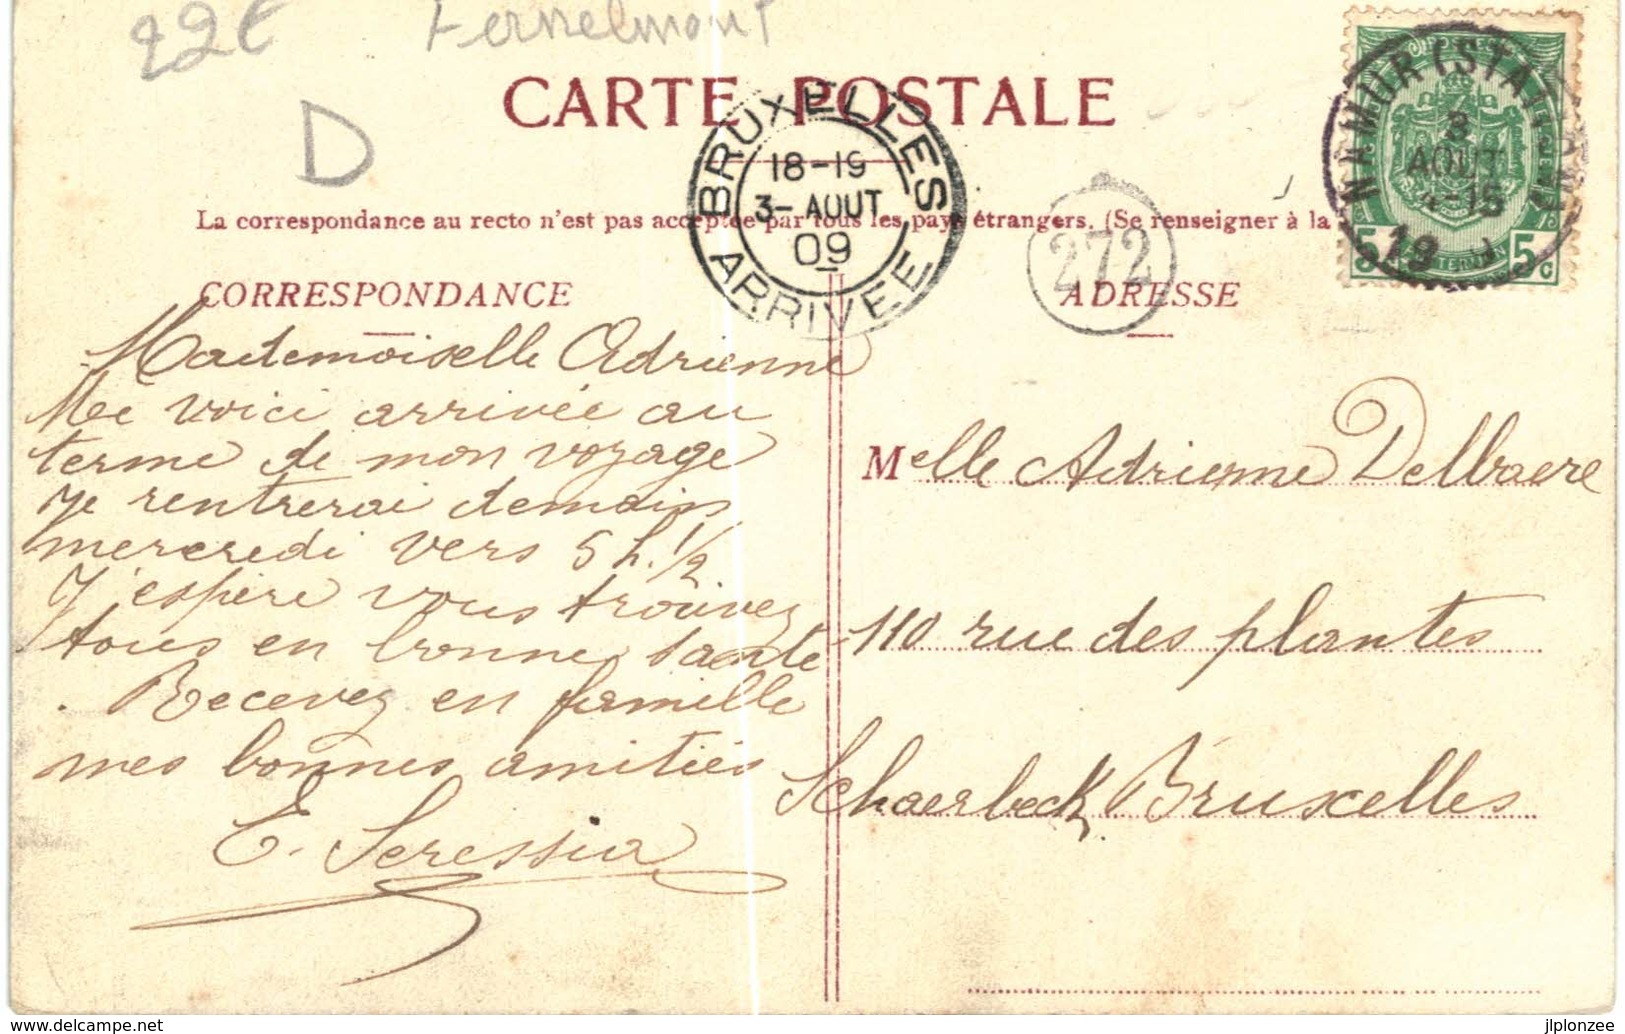 22€ Fernelmont
D
CARTE POSTALE
BRUXELLES
18-19
3-AOUT
09
ARRIVEE
NAMUR (STATION)
3
AOUT
19
5 5c
La correspondance au recto n'est pas acceptée par tous les pays étrangers. (Se renseigner à la
272
CORRESPONDANCE
ADRESSE
Mademoiselle Adrienne
Me voici arrivée au
terme de mon voyage
Je rentrerai demain
mercredi vers 5 h. 1/2
J'espère vous trouvez
tous en bonne santé
Recevez en famille
mes bonnes amitiés
E.
Melle Adrienne Delbaere
110 rue des plantes
Schaerbeck Bruxelles
www.delcampe.net
jlplonzee